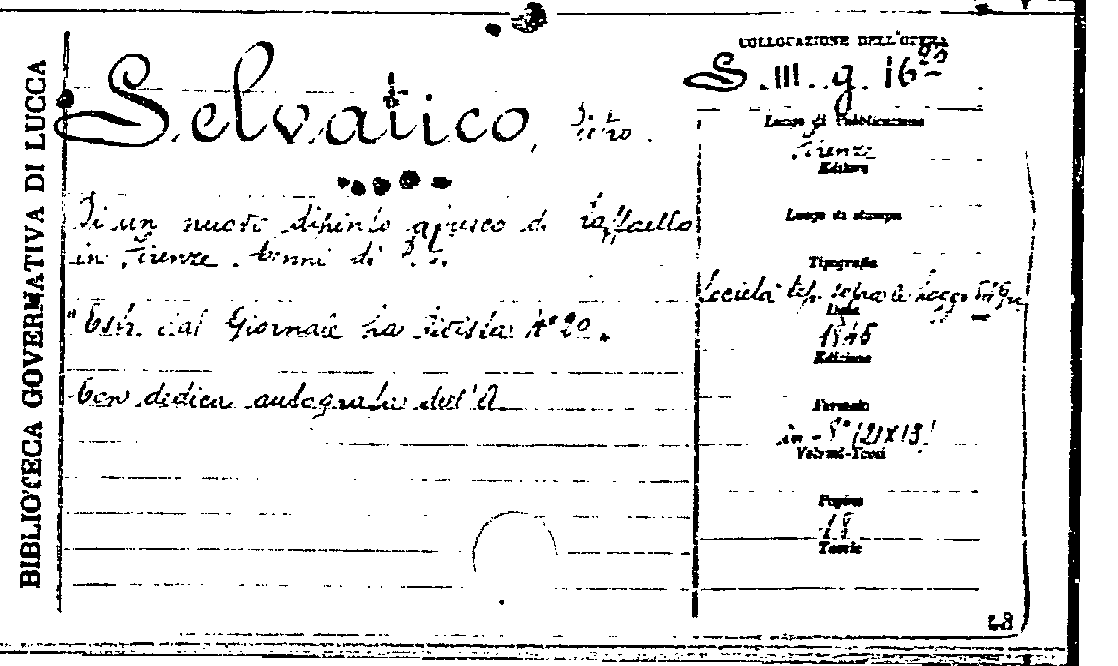 BIBLIOTECA GOVERNATIVA DI LUCCA
Selvatico, Pietro.
Di un nuovo dipinto a fresco di Raffaello
in Firenze. Cenni di P. S.
"Estr. dal Giornale La Rivista N° 20.
Con dedica autografa dell'A.
COLLOCAZIONE DELL'OPERA
S. III. g. 16
Luogo di Pubblicazione
Firenze
Editore
Luogo di stampa
Tipografia
Società tip. sopra le Logge
Data
1845
Edizione
Formato
in-8° (21x13)
Volumi-Tomi
Pagine
18
Tavole